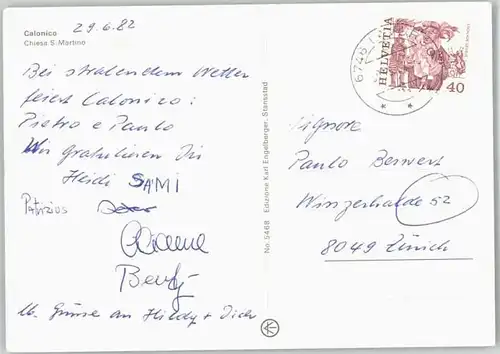 Calonico
Chiesa S. Martino
29.6.82
Bei stralendem Wetter
feiert Calonico:
Pietro e Paulo
Wir gratulieren Dir
Heidi SAMI
Patrizius
Lb. Grüsse an Hildy + Dich
No. 5468 Edizione Karl Engelberger, Stansstad
6746
HELVETIA
40
Signore
Paulo Beswert
Winzerhalde 52
8049 Zürich